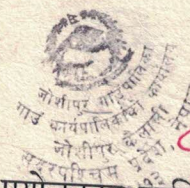 जोशीपुर गाउँपालिका
गाउँ कार्यपालिकाको कार्यालय
जोशीपुर, कैलाली
सुदूरपश्चिम प्रदेश, नेपाल